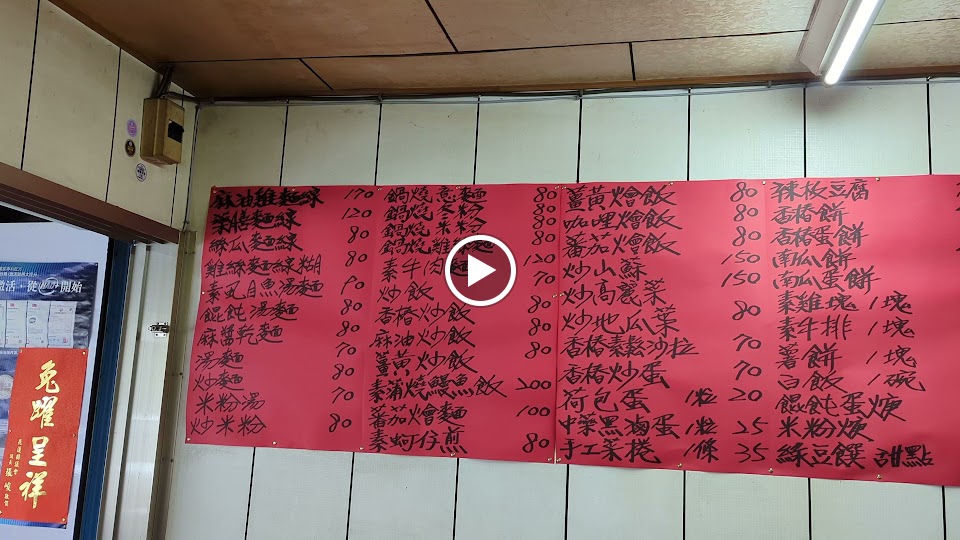 麻油雞麵線 170
藥膳麵線 120
絲瓜麵線 80
雞絲麵線糊 80
素虱目魚湯麵 90
餛飩湯麵 80
麻醬乾麵 80
湯麵 70
炒麵 80
米粉湯 70
炒米粉 80
鍋燒意麵 80
鍋燒冬粉 80
鍋燒米粉 80
鍋燒雞絲麵 80
素牛肉麵 120
炒飯 70
香椿炒飯 80
麻油炒飯
薑黃炒飯 80
素蒲燒鰻魚飯 200
蕃茄燴麵 100
素蚵仔煎 80
薑黃燴飯 80
咖哩燴飯 80
蕃茄燴飯 80
炒山蘇 150
炒高麗菜 150
炒地瓜菜 80
香椿素鬆沙拉 70
香椿炒蛋 70
荷包蛋 1粒 20
中藥黑滷蛋 1粒 25
手工菜捲 1條 35
辣板豆腐
香椿餅
香椿蛋餅
南瓜餅
南瓜蛋餅
素雞塊 1塊
素牛排 1塊
薯餅 1塊
白飯 1碗
餛飩蛋羹
米粉羹
綠豆饌 甜點
開始
兔躍呈祥